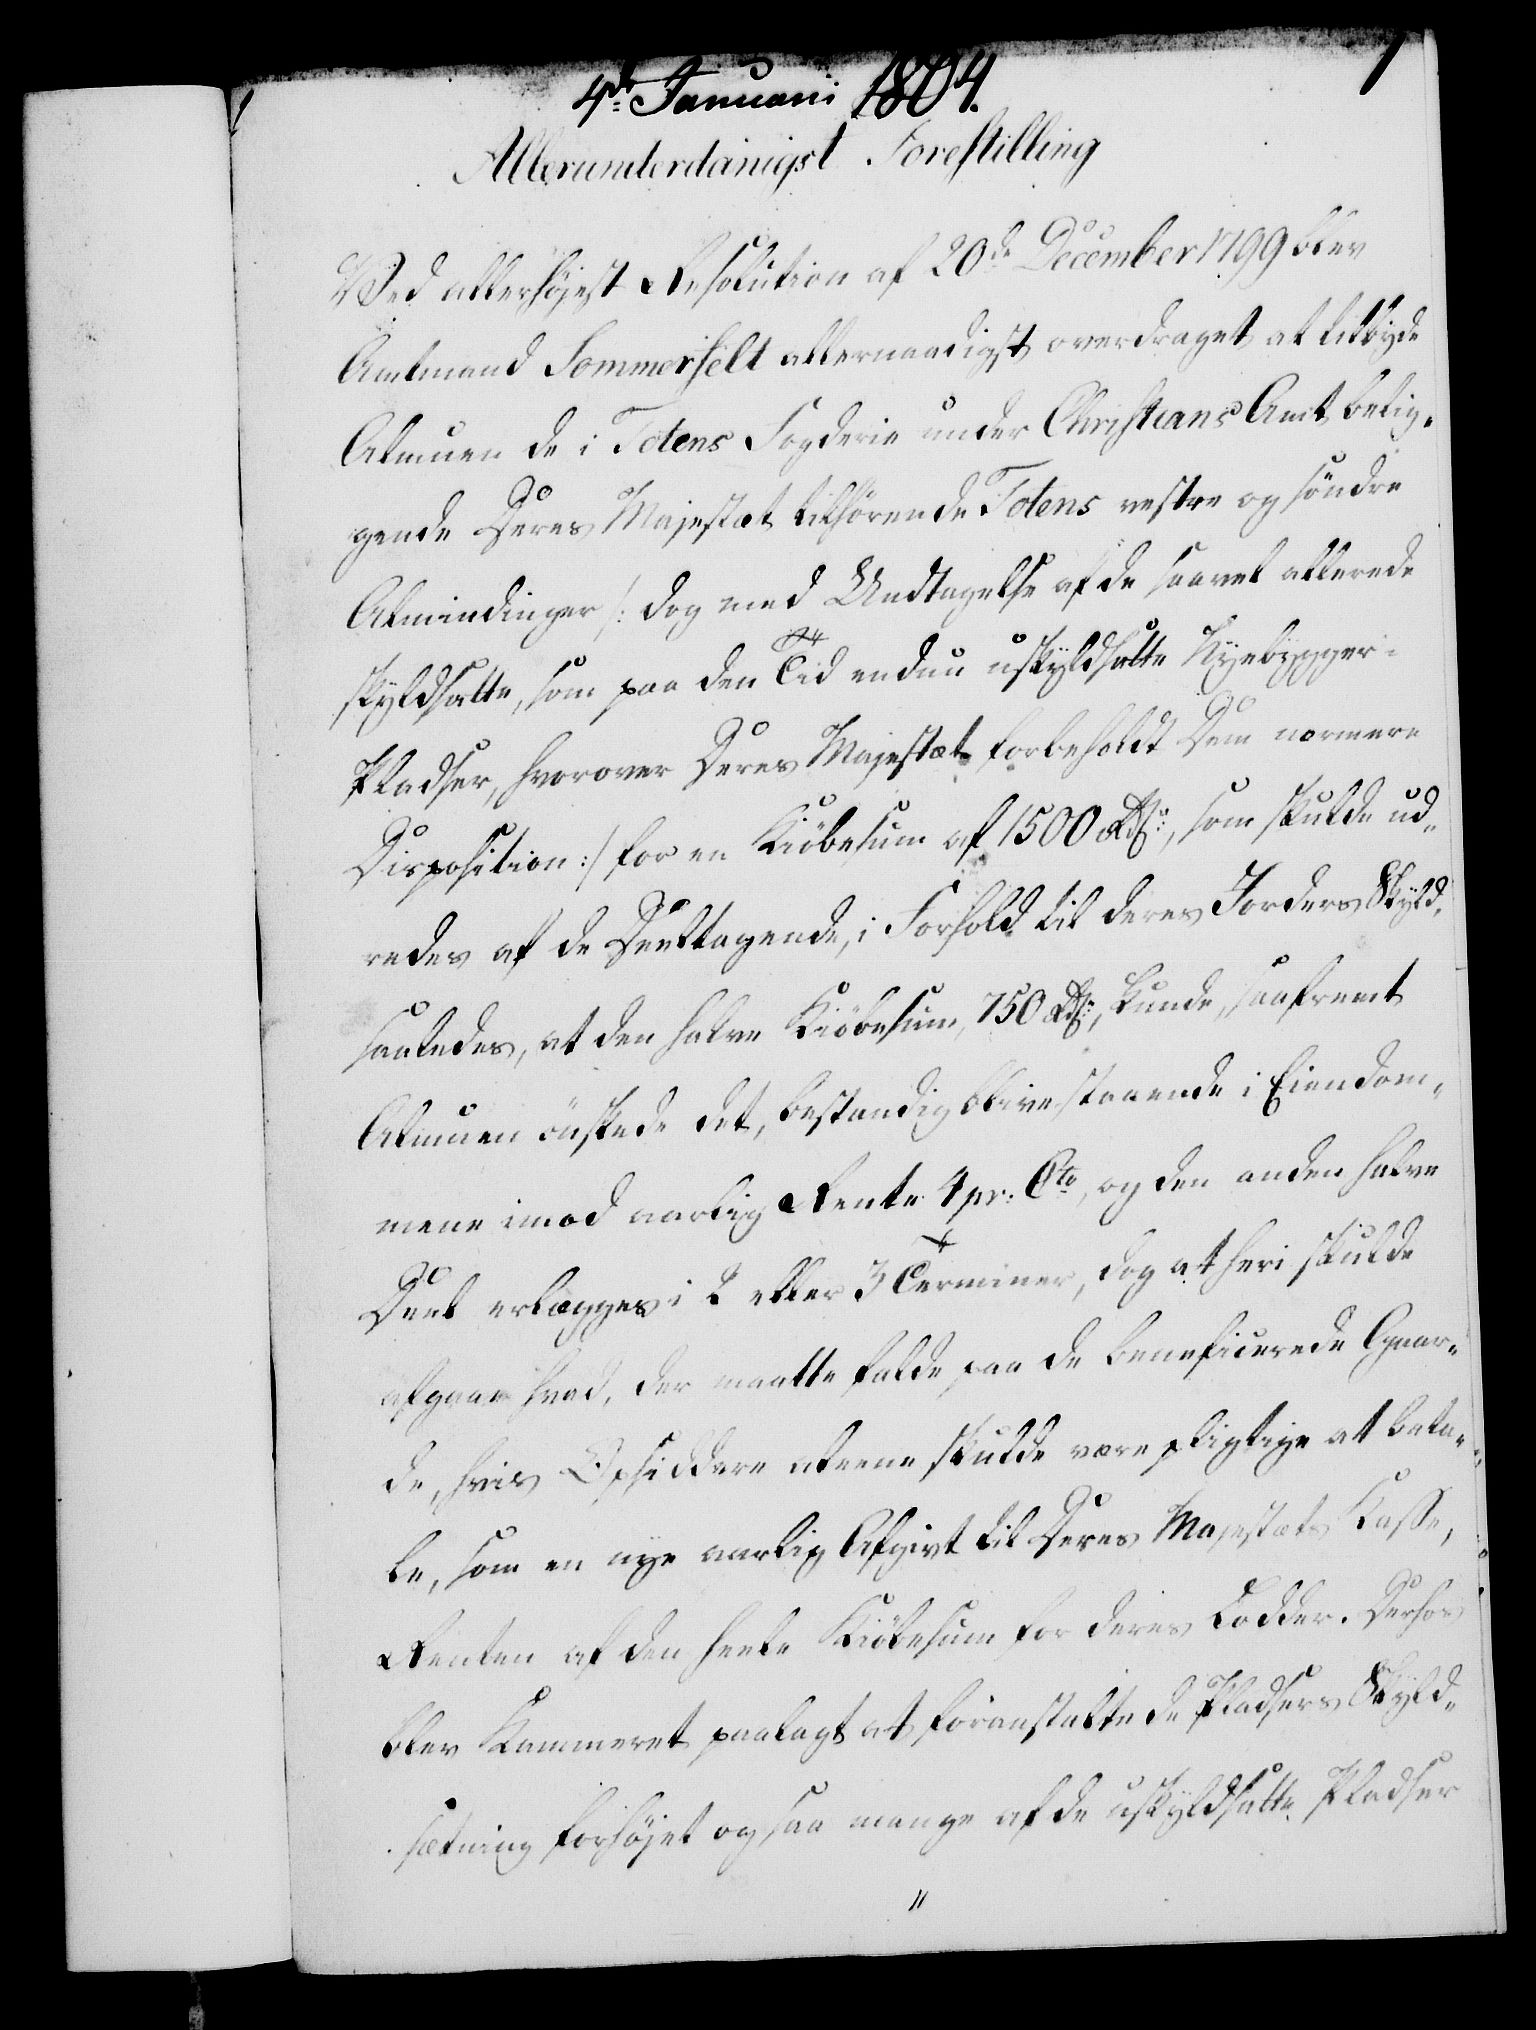 4de Januari 1804.
Allerunderdanigst Forestilling
Ved allerhöjest Resolution af 20de December 1799 blev
Amtmand Sommerfelt allernaadigst overdraget at tilbyde
Almuen de i Totens Fogderie under Christians Amt belig-
gende Deres Majestæt tilhörende Totens vestre og söndre
Almindinger /: dog med Undtagelse af de saavel allerede
skyldsatte, som paa den Tid endnu uskyldsatte Nyebygger-
Pladser, hvorover Deres Majestæt forbeholdt Dem nærmere
Disposition :/ for en Kiöbesum af 1500 Rdr:, som skulde ud-
redes af de Deeltagende, i Forhold til deres Jorders Skyld,
saaledes, at den halve Kiöbesum, 750 Rdr:, kunde, saafremt
Almuen önskede det, bestandig blive staaende i Eiendom-
mene imod aarlig Rente 4 pr: Cto, og den anden halve
Deel erlægges i 2 eller 3 Terminer, dog at heri skulde
afgaae hvad, der maatte falde paa de beneficerede Gaar-
de, hvis Opsiddere alene skulde være pligtige at beta-
le, som en nye aarlig Afgivt til Deres Majestæts Kasse,
Renten af den heele Kiöbesum for deres Lodder. Derhos
blev Kammeret paalagt at foranstalte de Pladsers Skyld-
sætning forhöjet og saa mange af de uskyldsatte Pladser
"